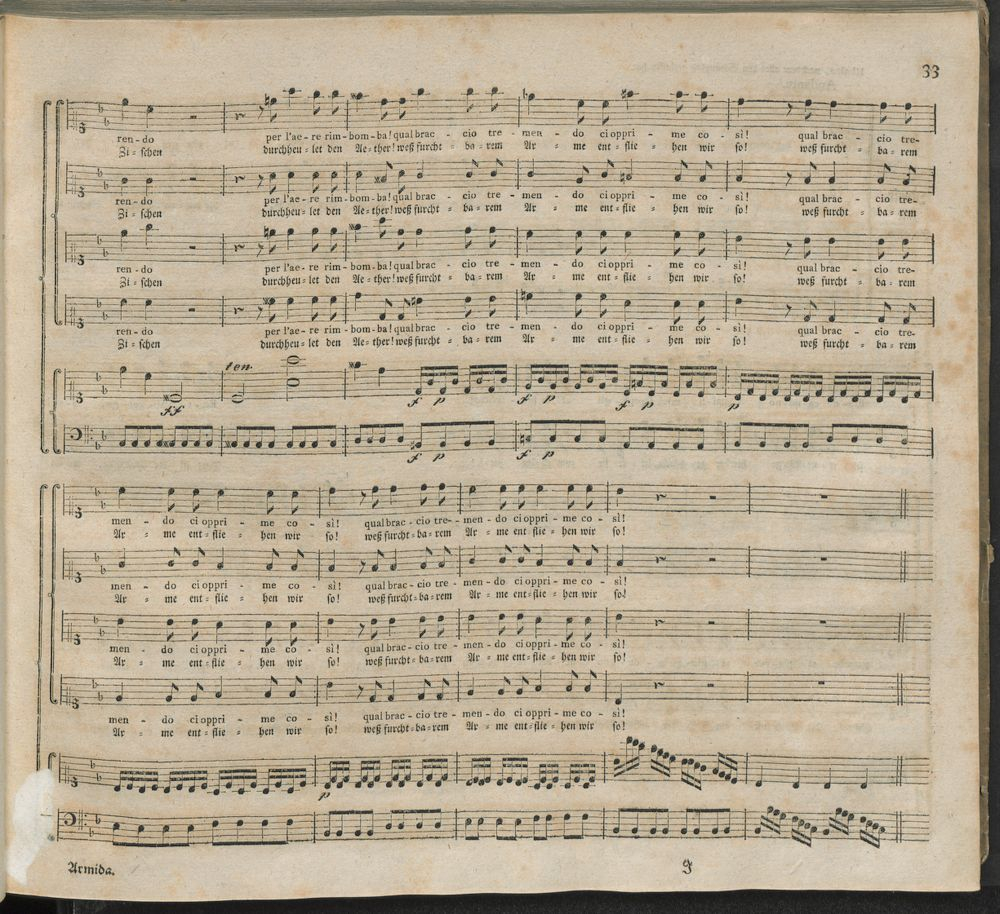 33
ren - do per l'ae - re rim - bom - ba! qual brac - cio tre - men - do ci oppri - me co - sì! qual brac - cio tre-
Zi = schen durchheu = let den Ae = ther! weß furcht = ba = rem Ar = me ent = flie = hen wir so! weß furcht = ba = rem
ren - do per l'ae - re rim - bom - ba! qual brac - cio tre - men - do ci oppri - me co - sì! qual brac - cio tre-
Zi = schen durchheu = let den Ae = ther! weß furcht = ba = rem Ar = me ent = flie = hen wir so! weß furcht = ba = rem
ren - do per l'ae - re rim - bom - ba! qual brac - cio tre - men - do ci oppri - me co - sì! qual brac - cio tre-
Zi = schen durchheu = let den Ae = ther! weß furcht = ba = rem Ar = me ent = flie = hen wir so! weß furcht = ba = rem
ren - do per l'ae - re rim - bom - ba! qual brac - cio tre - men - do ci oppri - me co - sì! qual brac - cio tre-
Zi = schen durchheu = let den Ae = ther! weß furcht = ba = rem Ar = me ent = flie = hen wir so! weß furcht = ba = rem
ten.
ff f p f p f p p
f p f p
men - do ci oppri - me co - sì! qual brac - cio tre - men - do ci oppri - me co - sì!
Ar = me ent = flie = hen wir so! weß furcht = ba = rem Ar = me ent flie = hen wir so!
men - do ci oppri - me co - sì! qual brac - cio tre - men - do ci oppri - me co - sì!
Ar = me ent = flie = hen wir so! weß furcht = ba = rem Ar = me ent = flie = hen wir so!
men - do ci oppri - me co - sì! qual brac - cio tre - men - do ci oppri - me co - sì!
Ar = me ent = flie = hen wir so! weß furcht = ba = rem Ar = me ent = flie = hen wir so!
men - do ci oppri - me co - sì! qual brac - cio tre - men - do ci oppri - me co - sì!
Ar = me ent = flie = hen wir so! weß furcht = ba = rem Ar = me ent = flie = hen wir so!
p
Armida. J